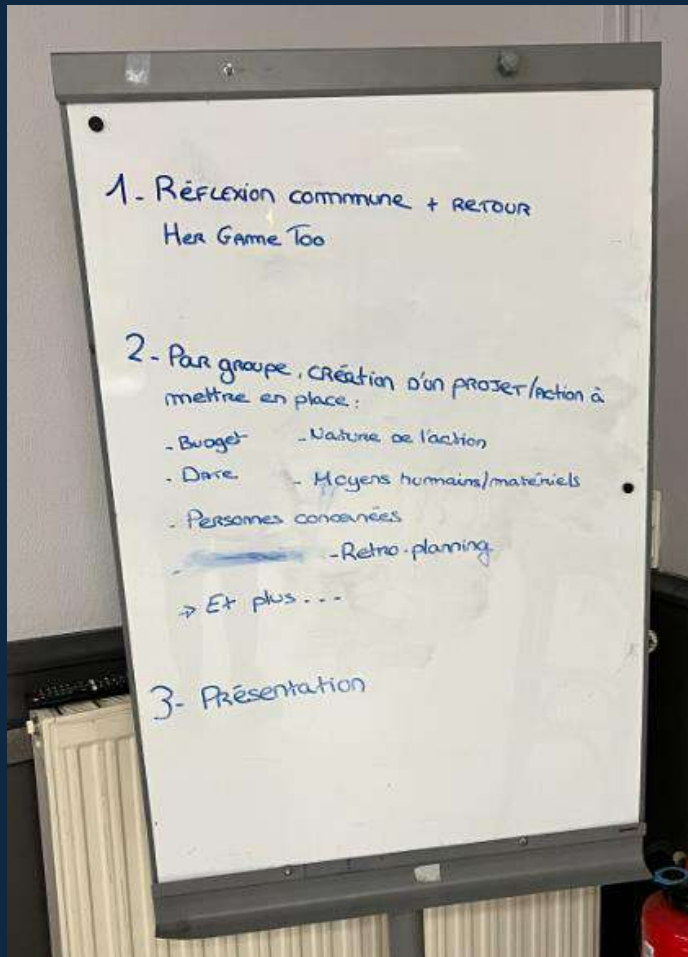 1- Réflexion commune + retour
Her Game Too
2- Par groupe, création d'un projet/action à
mettre en place :
- Budget - Nature de l'action
- Date - Moyens humains/matériels
- Personnes concernées
- - Retro-planning
→ Et plus...
3- Présentation